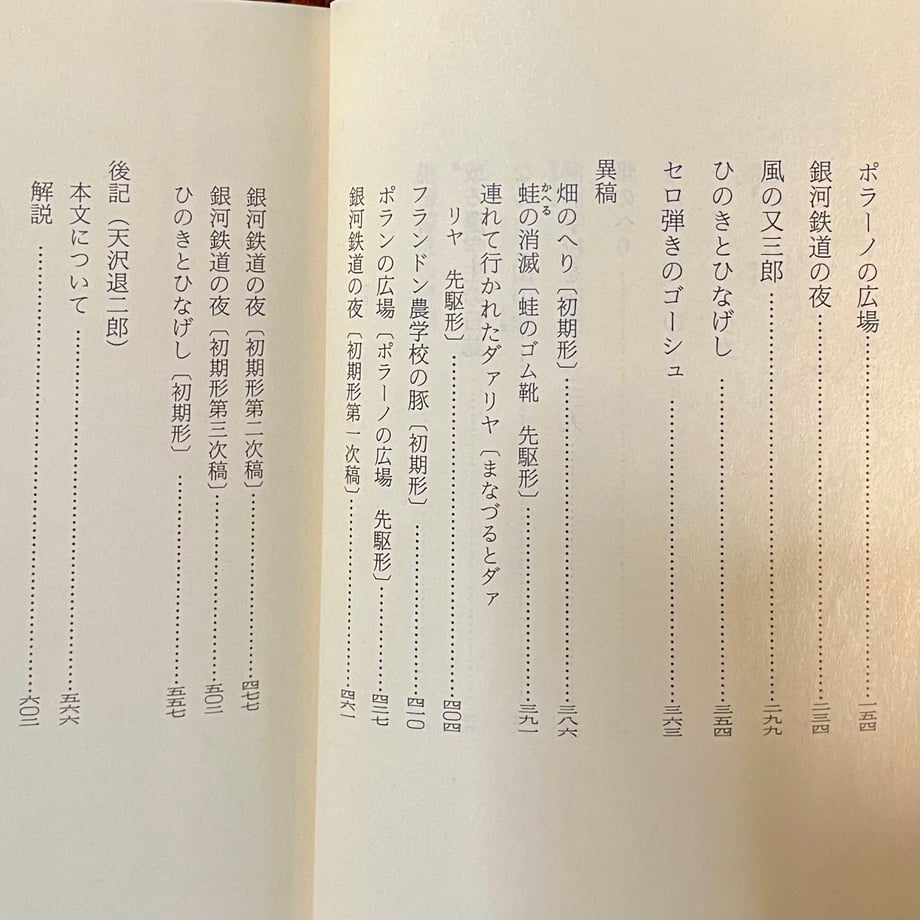 ポラーノの広場……一五四
銀河鉄道の夜……二三四
風の又三郎……二九九
ひのきとひなげし……三五四
セロ弾きのゴーシュ……三六三
異稿
畑のへり〔初期形〕……三八六
蛙の消滅〔蛙のゴム靴　先駆形〕……三九一
かへる
連れて行かれたダァリヤ〔まなづるとダァ
リヤ　先駆形〕……四〇四
フランドン農学校の豚〔初期形〕……四一〇
ポランの広場〔ポラーノの広場　先駆形〕……四二七
銀河鉄道の夜〔初期形第一次稿〕……四六一
銀河鉄道の夜〔初期形第二次稿〕……四七七
銀河鉄道の夜〔初期形第三次稿〕……五〇二
ひのきとひなげし〔初期形〕……五五七
後記（天沢退二郎）
本文について……五六六
解説……六〇二